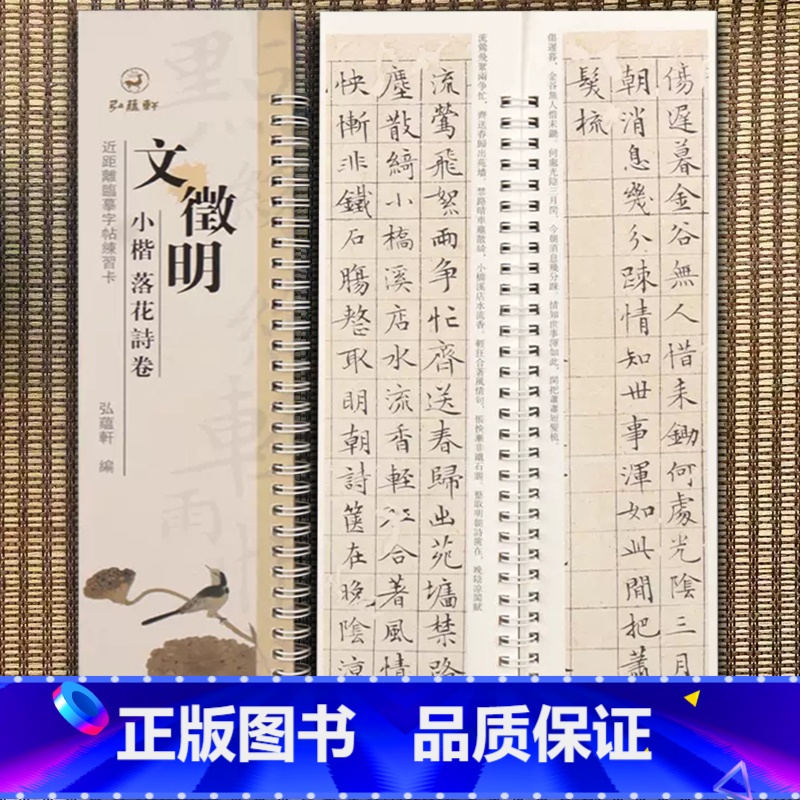 弘蘊軒
文徵明
小楷 落花詩卷
近距離臨摹字帖練習卡
弘蘊軒 編
傷遲暮金谷無人惜未鋤何處光陰三月
朝消息幾分踈情知世事渾如此閒把蕭
髮梳
傷遲暮，金谷無人惜未鋤。何處光陰三月閏，今朝消息幾分踈。情知世事渾如此，閒把蕭蕭短髮梳。
流鶯飛絮兩爭忙齊送春歸出苑墻禁路
塵散綺小橋溪店水流香輕狂合著風情
怏慚非鐵石腸整取明朝詩篋在晚陰涼
流鶯飛絮兩爭忙，齊送春歸出苑墻。禁路晴車塵散綺，小橋溪店水流香。輕狂合著風情句，悵怏慚非鐵石腸。整取明朝詩篋在，晚陰涼閣賦
正版图书 品质保证